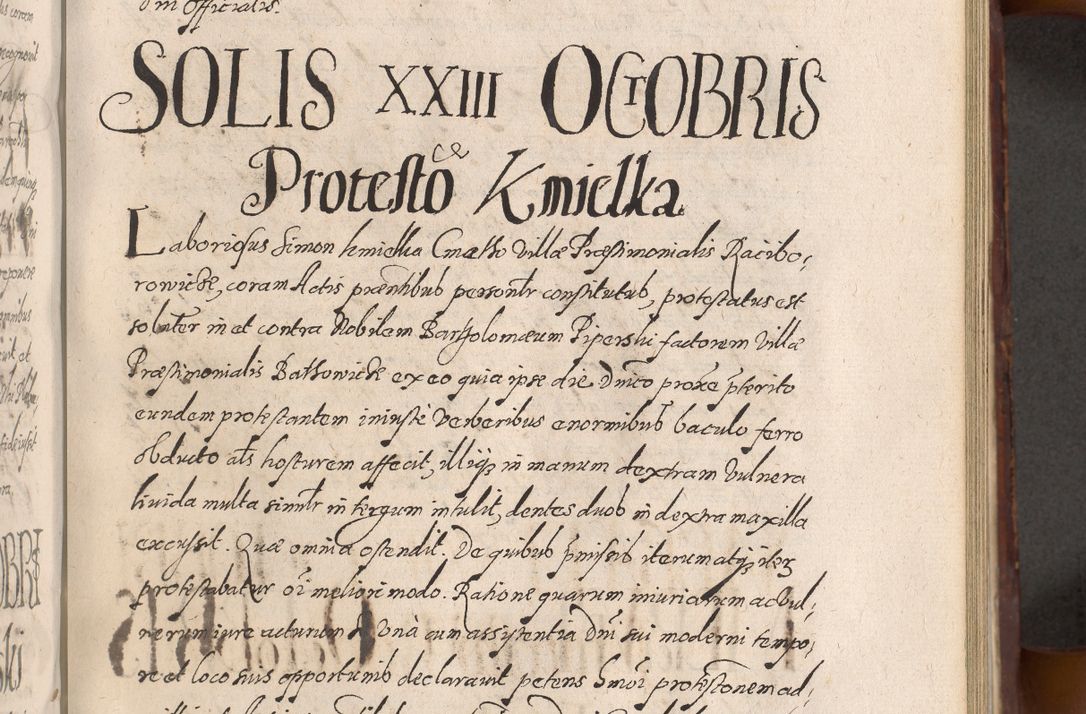 Dni Officialis.
SOLIS XXIII OCTOBRIS
Protestō Kmielka
Laboriosus Simon Kmielka Cmetho Villæ Præstimonialis Racibo-
rowicze, coram Actis præntibus personltr constitutus, protestatus est
solntr in et contra Nobilem Bartholomæum Piperski factorem Villæ
Præstimonialis Bathowicze ex eo quia ipse die Dnico proxe pterito
eundem protestantem iniustè Verberibus enormibus baculo ferro
obducto als hosturem affecit, illiqz in manum dextram Vulnera
livida multa similr in tergum intulit, dentes duos in dextra maxilla
excussit. Quæ omnia ostendit. De quibus pmissis iterum atqz iterz
protestabatur oi meliori modo. Ratione quarum iniuriarum ac Vul-
nerum iure acturum Vnà cum assistentia Dni sui moderni tempo-
re et loco suis opportunis declaravit petens hmoi protestonem ad